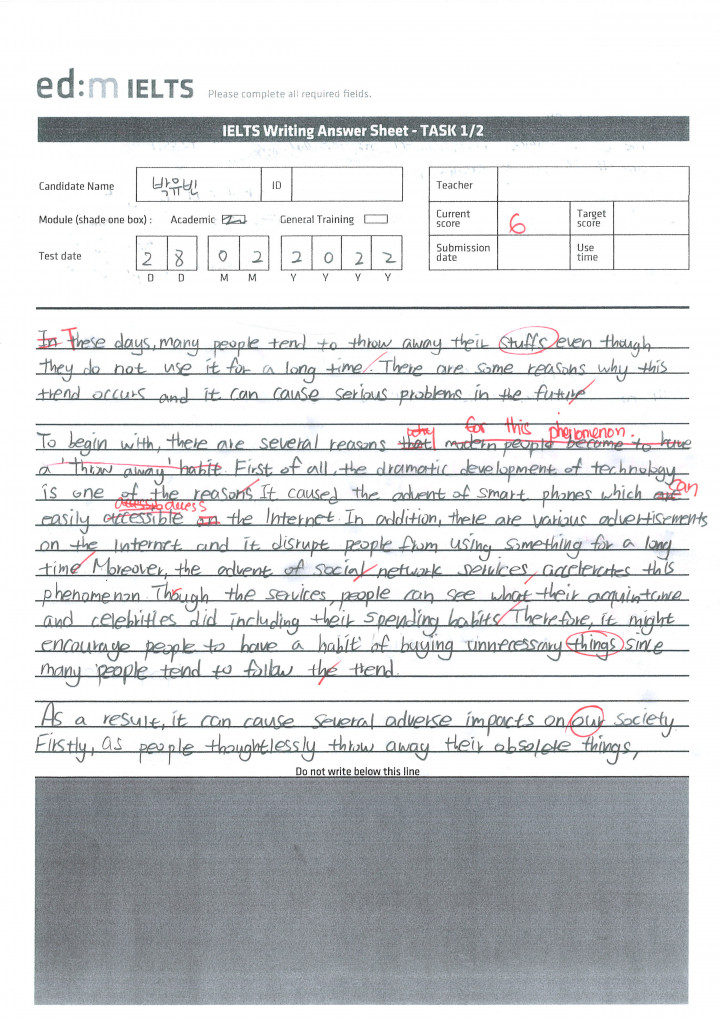 ed:m IELTS Please complete all required fields.
IELTS Writing Answer Sheet - TASK 1/2
Candidate Name 박유빈 ID
Teacher
Module (shade one box) : Academic General Training
Current score 6 Target score
Test date 2 8 0 2 2 0 2 2
D D M M Y Y Y Y
Submission date Use time
In These days, many people tend to throw away their stuffs even though
they do not use it for a long time. There are some reasons why this
trend occurs and it can cause serious problems in the future
why for this phenomenon.
To begin with, there are several reasons that modern people become to have
a 'throw away' habit. First of all, the dramatic development of technology
is one of the reasons. It caused the advent of smart phones which are can
access
easily accessible on the Internet. In addition, there are various advertisements
on the Internet and it disrupt people from using something for a long
time. Moreover, the advent of social network services, accelerates this
phenomenon. Though the services, people can see what their acquintance
and celebrities did including their spending habits. Therefore, it might
encourage people to have a habit of buying unnecessary things since
many people tend to follow the trend.
As a result, it can cause several adverse impacts on our society.
Firstly, as people thoughtlessly throw away their obsolete things,
Do not write below this line